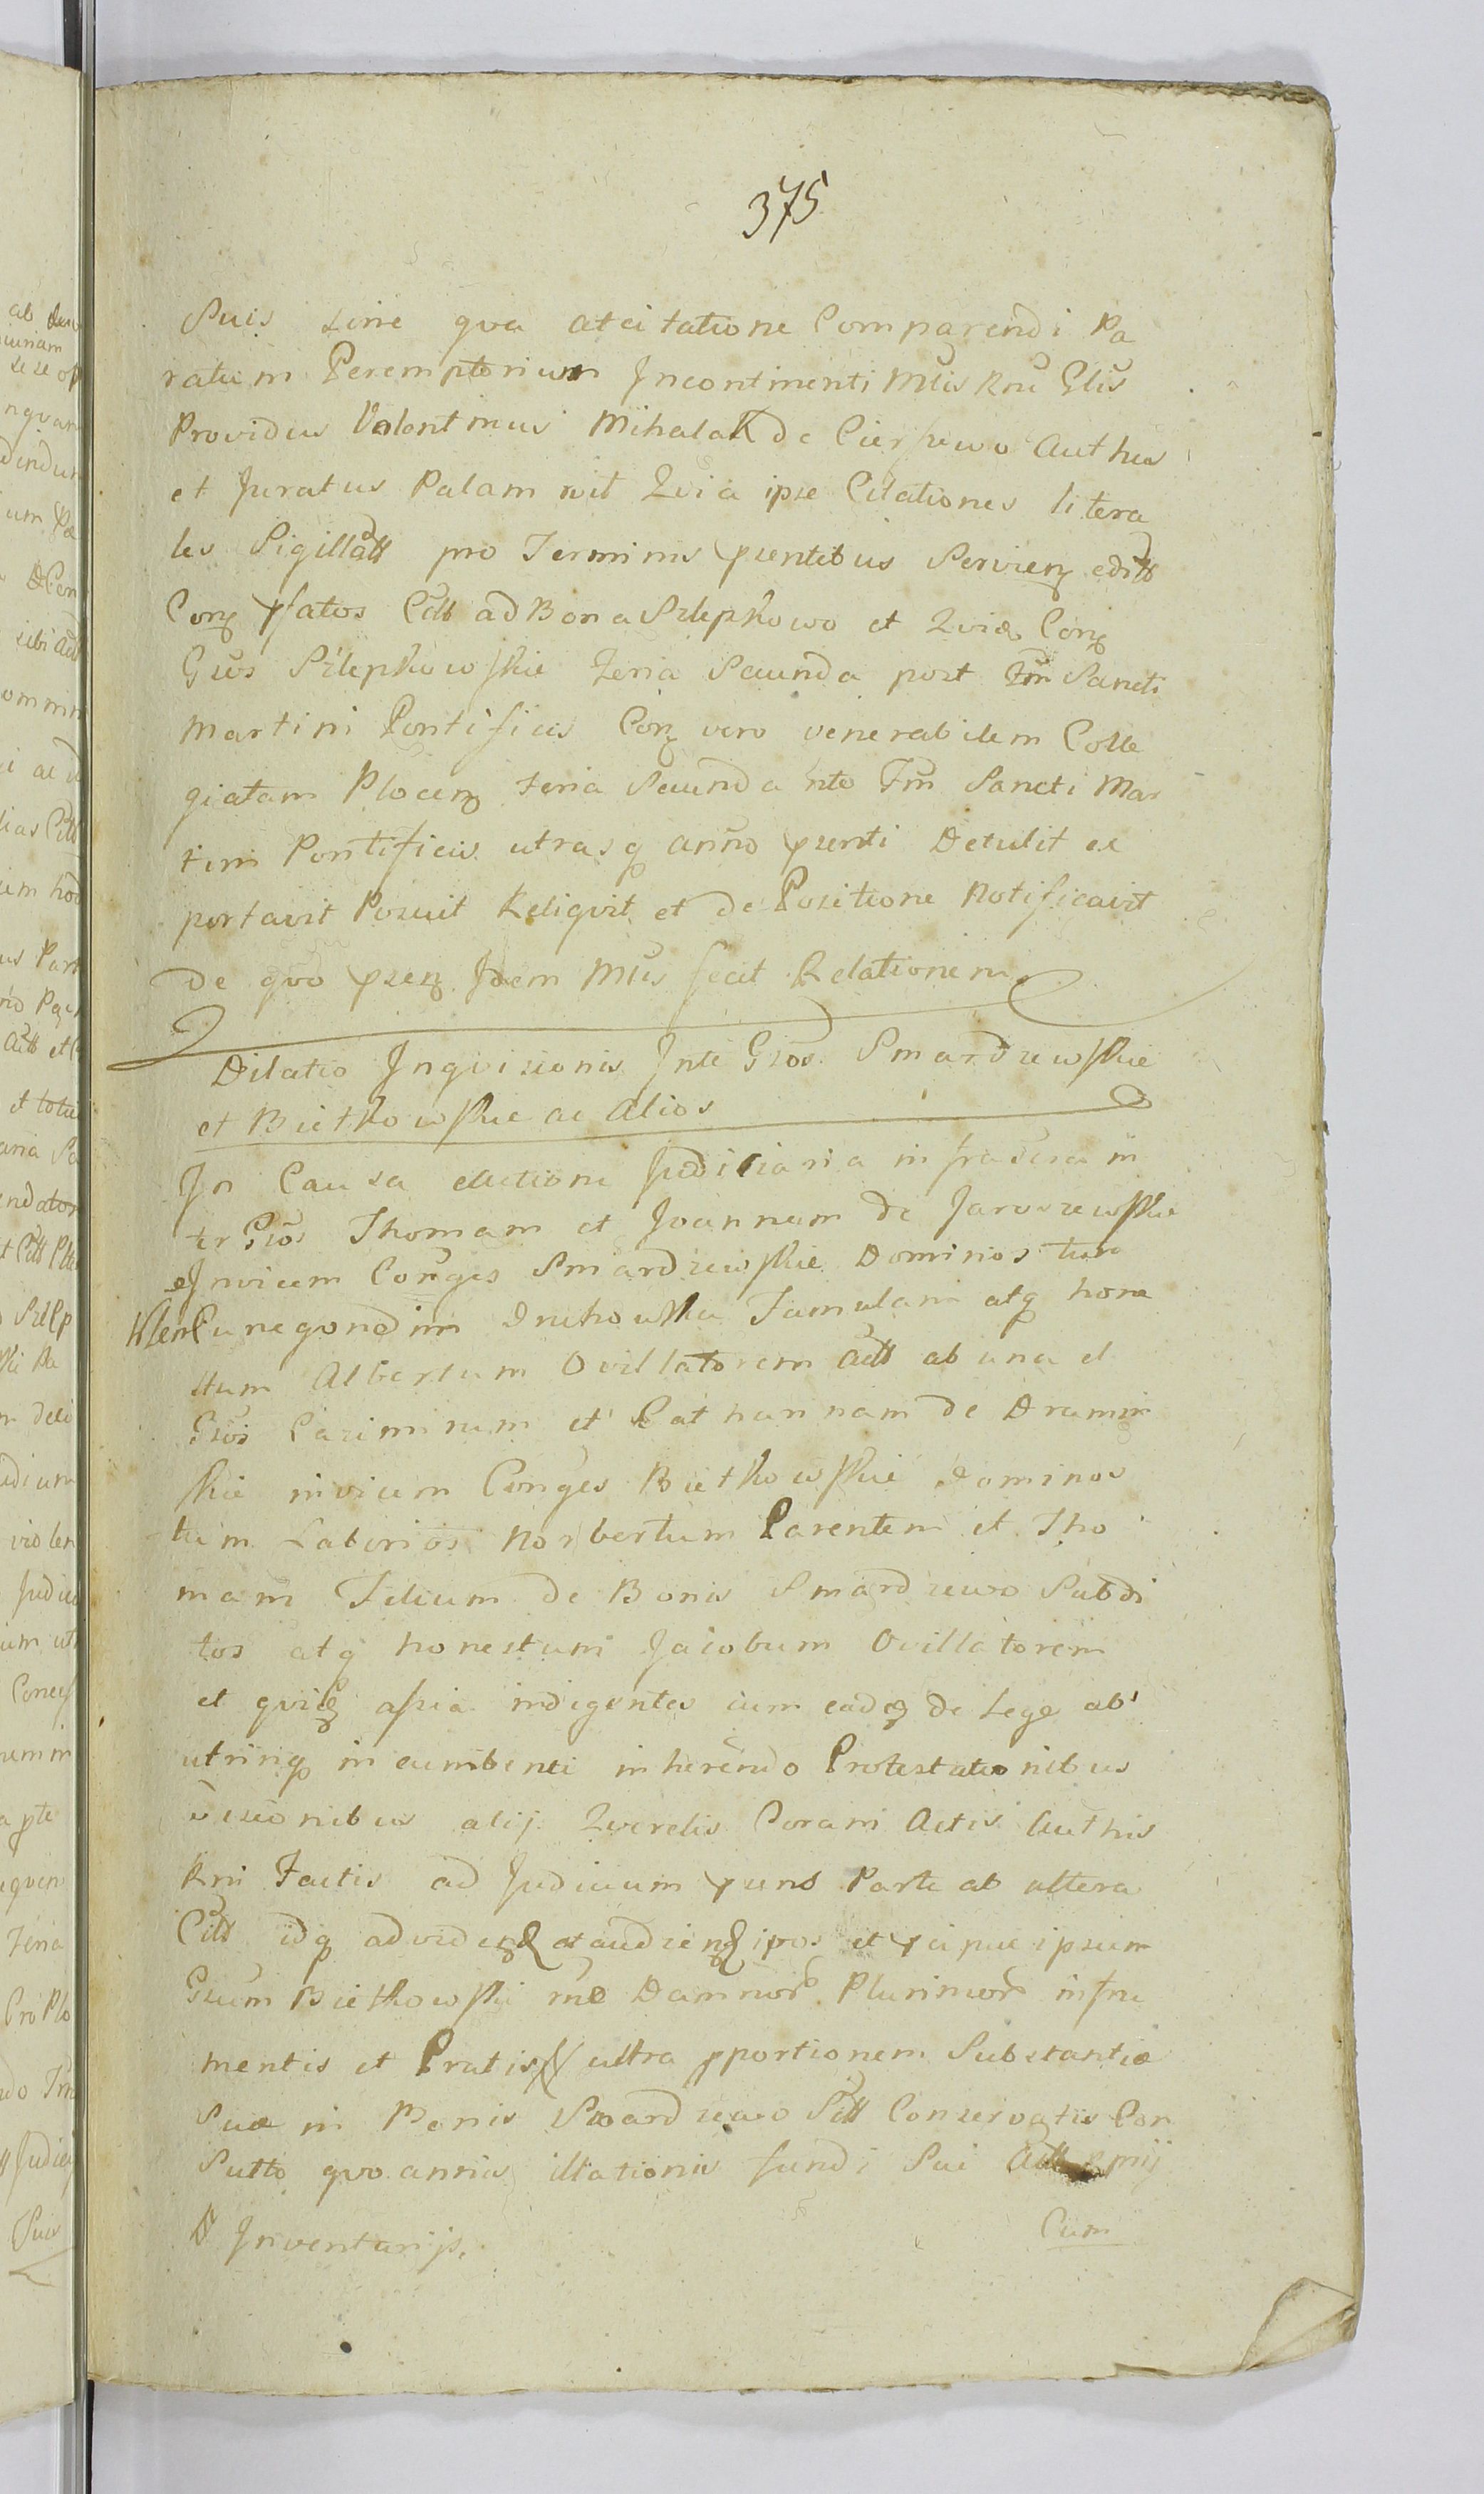 375
Suis sine qua atcitatione Comparendi Pa
ratum Peremptorium Incontinenti Mlis Rni Glis
Providus Valentinus Mihalak de Ciersewo Authus
et Juratus Palam rvit Quia ipse Citationes litera
les Sigillatt pro Terminis psentibus Servien editt
Con pfatos Citt ad Bona Szlepkowo et Quidem Con
Gsos Szlepkowskie feria Secunda post Fm Sancti
Martini Pontificis Con vero venerabilem Colle
giatam Plocen feria Secunda nte Fm Sancti Mar
tini Pontificis utrasq anno psenti Detulit ex
portavit Posuit Reliqvit et de Positione Notificavit
de qvo psen Idem Mlis fecit Relationem
Dilatio Inqvisionis Inte Gsos Smardzewskie
et Bietkowskie ac Alios
In Causa Judiciaria infrascra in
ter Gsos Thomam et Joannam de Jaroszewskie
Invicem Conges Smardzewskie Dominos tum
Cunegondim Famulam atq hone
stum Albertum Ovillatorem Actt ab una et
Gsos Casimirum et Catharinnam de Dramin
skie invicem Conges Bietkowskie Dominos
tum Laborios Norbertum Parentem et Tho
mam Filium de Bonis Smardzewo Subdi
tos atq honestum Jacobum Ovillatorem
et qvidem indigentes cum eadem de Lege ab
utrinq incumbenti inherendo Protestationibus
visionibus alij Qverelis Coram Actis Authis
Rni Factis ad Judicium psens Parte ab altera
Citt idq ad viden et audien ipos et pcipue ipsum
Gsum Bietkowski rne Damnor Plurimor in fru
mentis et Pratis ultra pportionem Substantiæ
Suæ in Bonis Smardzewo Sitt Conservatis Con
Sutto qvo annis illationis fundi Sui Actt
Inventarijs. Cum